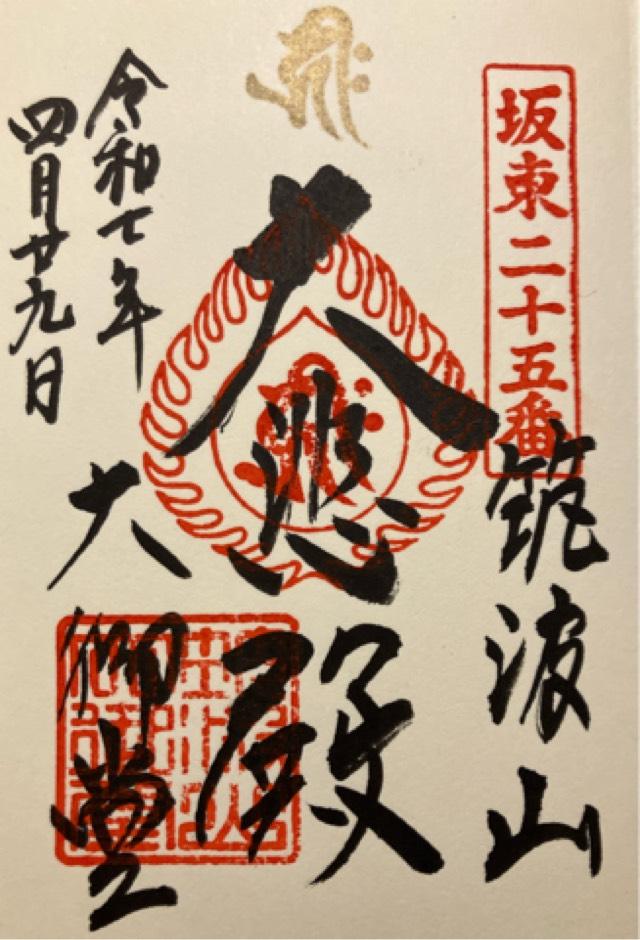 坂東二十五番
筑波山
大悲殿
大御堂
令和七年
四月廿九日